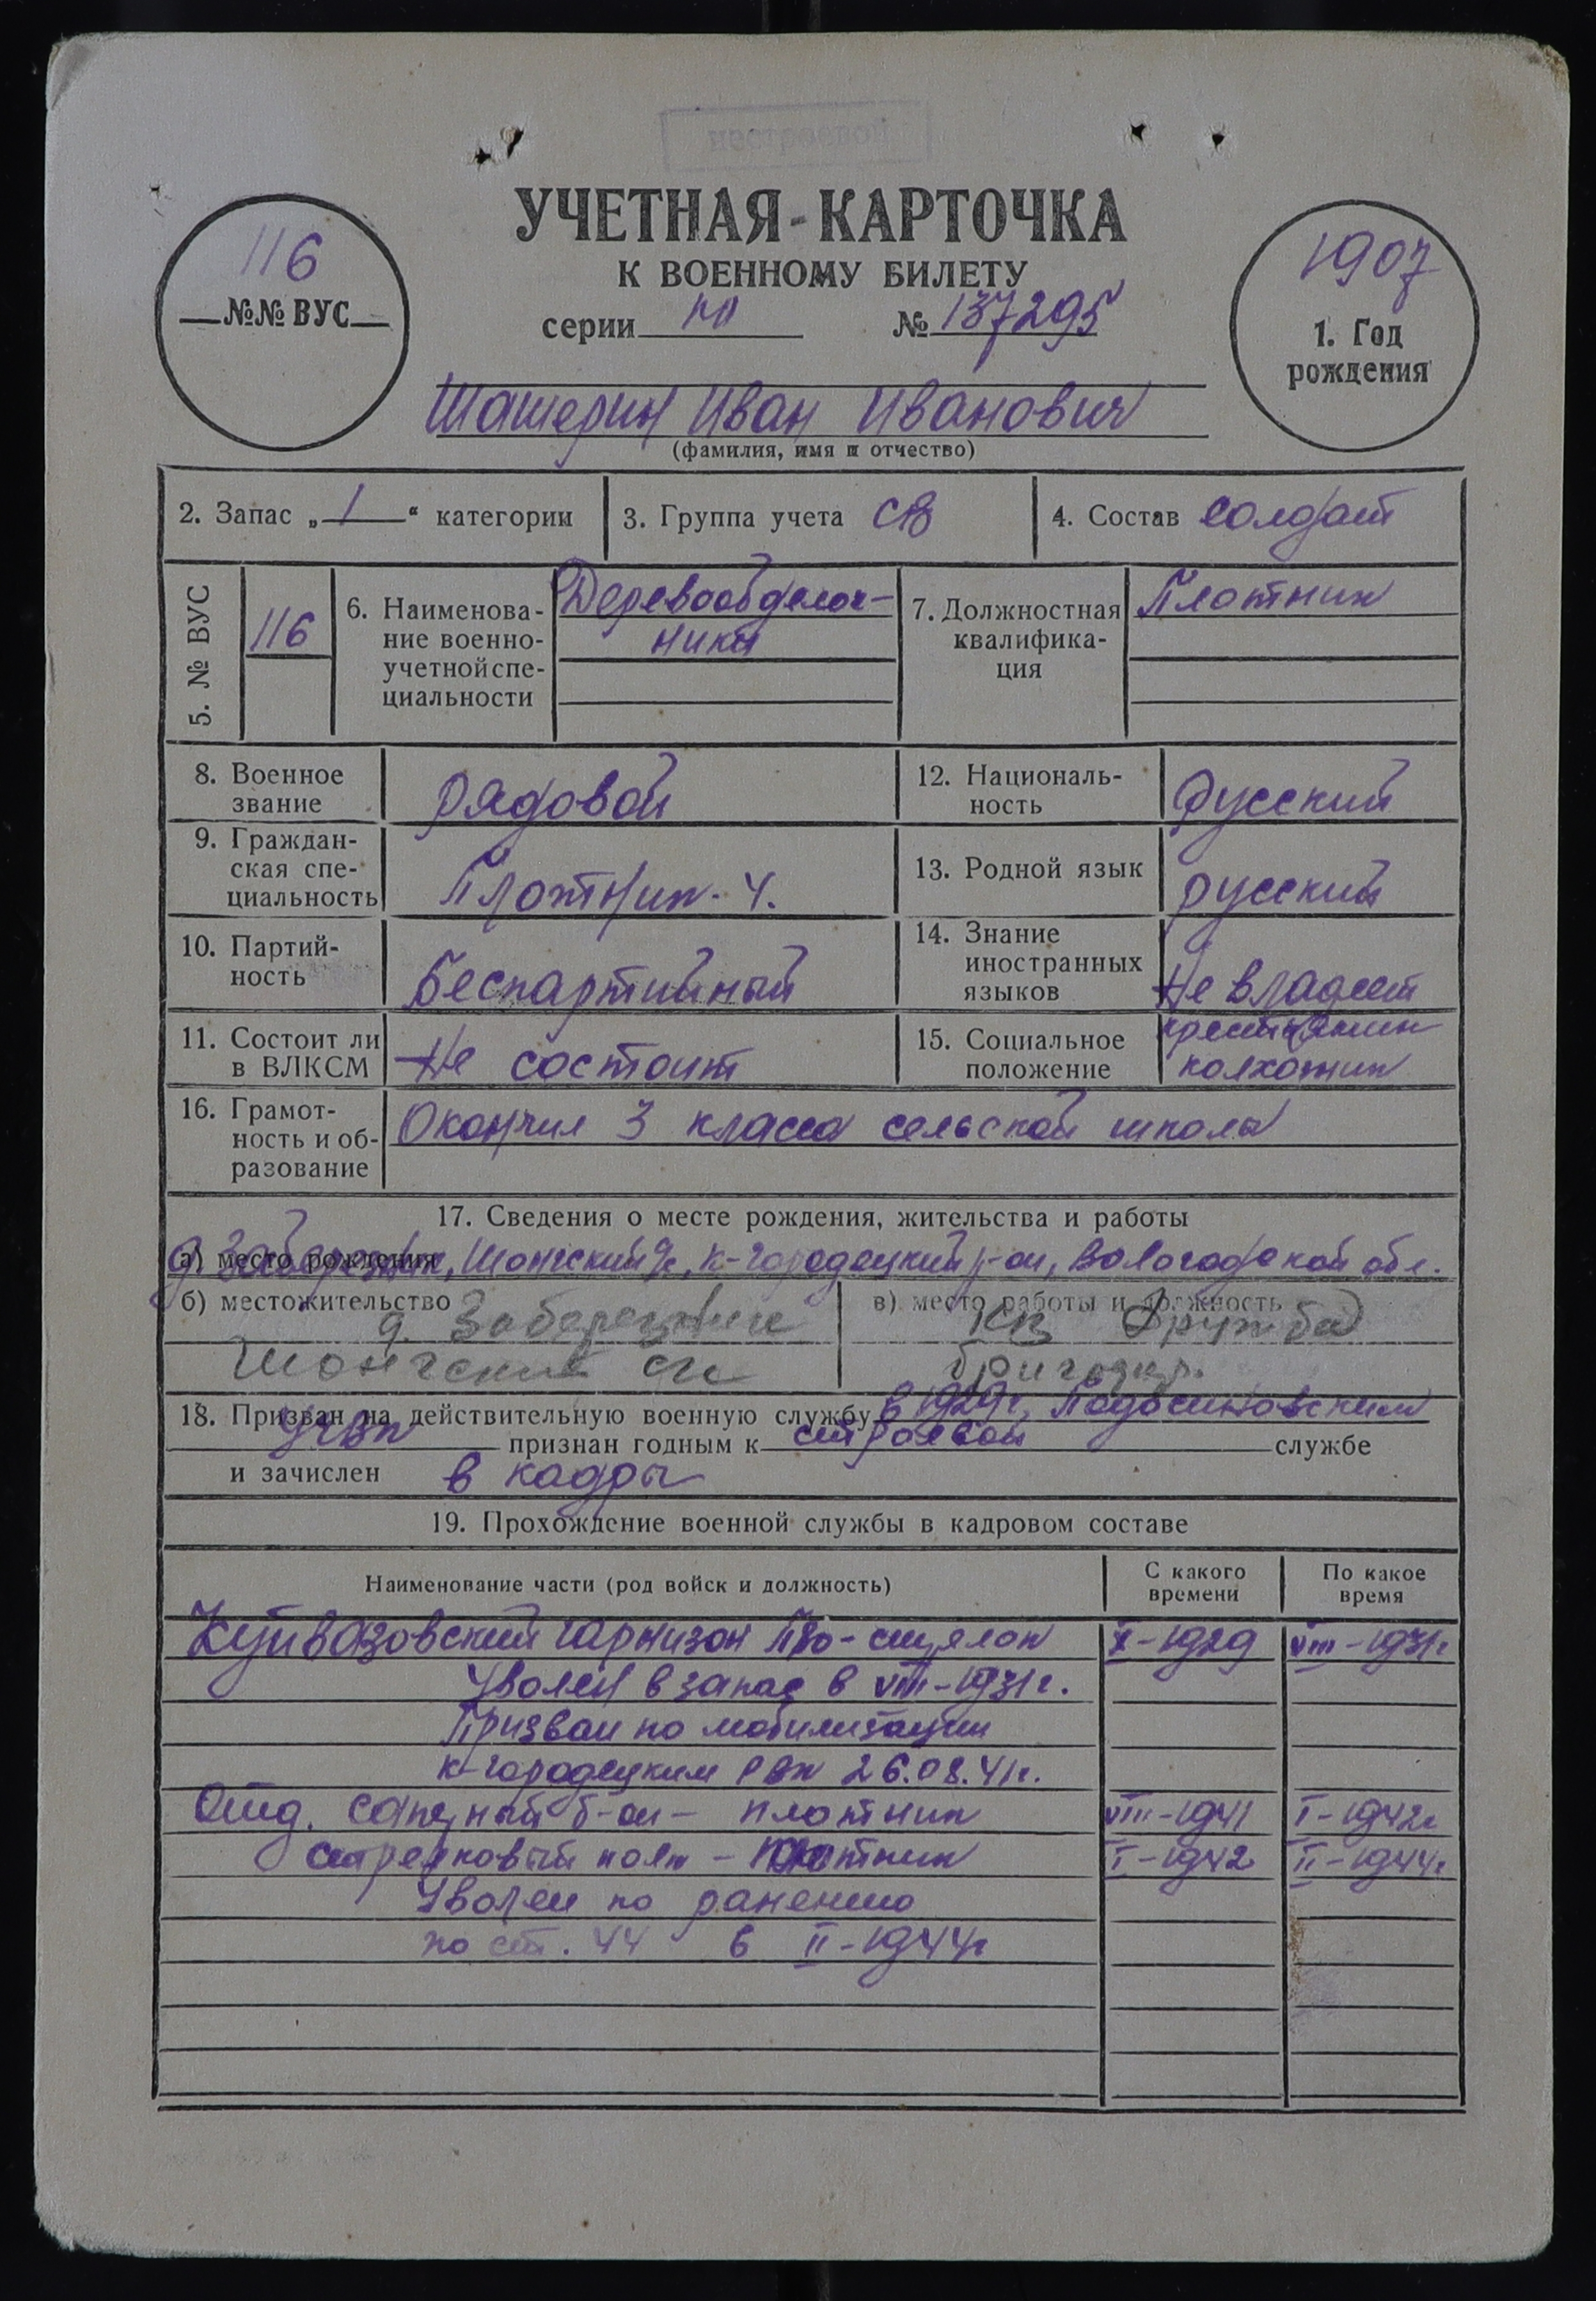 нестроевой
УЧЕТНАЯ-КАРТОЧКА
К ВОЕННОМУ БИЛЕТУ
серии № 137295
116
№№ ВУС
1907
1. Год
рождения
Шашерин Иван Иванович
(фамилия, имя и отчество)
2. Запас „ 1 “ категории
3. Группа учета СВ
4. Состав солдат
5. № ВУС
116
6. Наименова-
ние военно-
учетной спе-
циальности
Деревообделоч-
ники
7. Должностная
квалифика-
ция
Плотник
8. Военное
звание
рядовой
12. Националь-
ность
русский
9. Граждан-
ская спе-
циальность
Плотник-4.
13. Родной язык
русский
10. Партий-
ность
Беспартийный
14. Знание
иностранных
языков
Не владеет
11. Состоит ли
в ВЛКСМ
Не состоит
15. Социальное
положение
крестьянин
колхозник
16. Грамот-
ность и об-
разование
Окончил 3 класса сельской школы
17. Сведения о месте рождения, жительства и работы
а) место рождения
д. Заберезник, Шонгский с/с, К-Городецкий р-он, Вологодской обл.
б) местожительство
д. Заберезник
Шонгский с/с
в) место работы и должность
К-з Дружба
бригадир.
18. Призван на действительную военную службу в 1929 г. Подосиновским
признан годным к строевой службе
и зачислен в кадры
19. Прохождение военной службы в кадровом составе
Наименование части (род войск и должность)
С какого
времени
По какое
время
Куйвазовский гарнизон ПВО-стрелок X-1929 VIII-1931г
Уволен в запас в VIII-1931г.
Призван по мобилизации
К-Городецким РВК 26.08.41г.
Отд. саперный б-он - плотник VIII-1941 I-1942г
стрелковый полк - плотник I-1942 II-1944г
Уволен по ранению
по ст. 44 в II-1944г